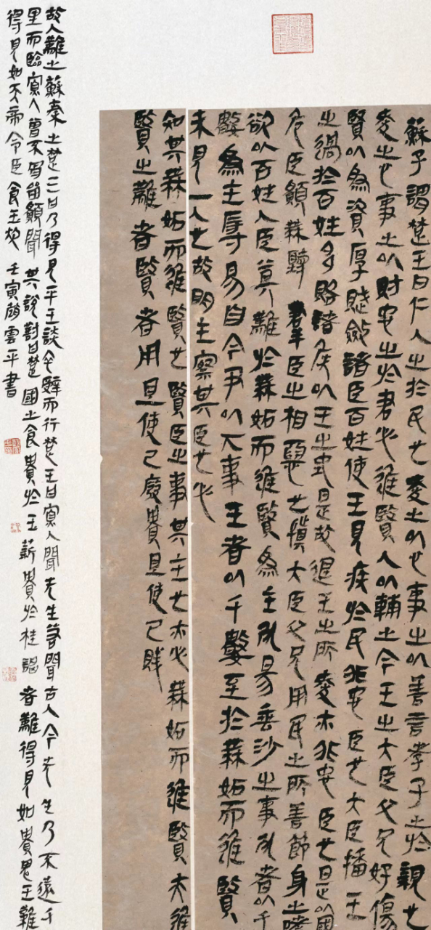 蘇子謂楚王曰仁人之於民也愛之以心事之以善言孝子之於親也
愛之以心事之以財忠臣之於君也必進賢人以輔之今王之大臣父兄好傷
賢以為資厚賦斂諸臣百姓使王見疾於民非忠臣也大臣播王
之過於百姓多賂諸侯以王之地是故退王之所愛亦非忠臣也是以國
危臣願無聽群臣之相惡也慎大臣父兄用民之所善節身之嗜
欲以百姓人臣莫難於無妒而進賢為主死易垂沙之事死者以千
數為主辱易自令尹以下事王者以千數至於無妒而進賢
未見一人也故明主察其臣也必
知其無妒而進賢也賢臣之事其主也亦必無妒而進賢夫進
賢之難者賢者用且使己廢貴且使己賤
故人難之蘇秦之楚三日乃得見乎王談卒辭而行楚王曰寡人聞先生若聞古人今先生乃不遠千
里而臨寡人曾不肯留願聞其說對曰楚國之食貴於玉薪貴於桂謁者難得見如鬼王難
得見如天帝令臣食玉炊 壬寅 雲平書